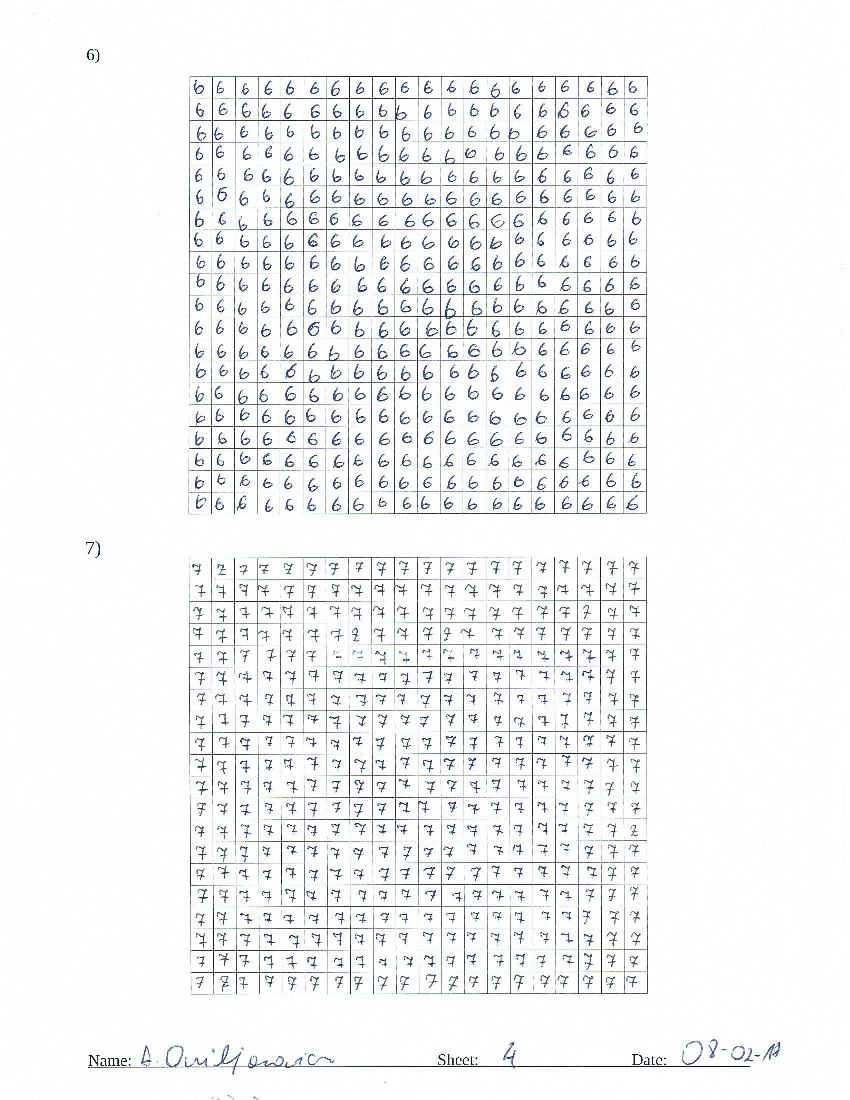 6)
6 6 6 6 6 6 6 6 6 6 6 6 6 6 6 6 6 6 6 6
6 6 6 6 6 6 6 6 6 6 6 6 6 6 6 6 6 6 6 6
6 6 6 6 6 6 6 6 6 6 6 6 6 6 6 6 6 6 6 6
6 6 6 6 6 6 6 6 6 6 6 6 6 6 6 6 6 6 6 6
6 6 6 6 6 6 6 6 6 6 6 6 6 6 6 6 6 6 6 6
6 6 6 6 6 6 6 6 6 6 6 6 6 6 6 6 6 6 6 6
6 6 6 6 6 6 6 6 6 6 6 6 6 6 6 6 6 6 6 6
6 6 6 6 6 6 6 6 6 6 6 6 6 6 6 6 6 6 6 6
6 6 6 6 6 6 6 6 6 6 6 6 6 6 6 6 6 6 6 6
6 6 6 6 6 6 6 6 6 6 6 6 6 6 6 6 6 6 6 6
6 6 6 6 6 6 6 6 6 6 6 6 6 6 6 6 6 6 6 6
6 6 6 6 6 6 6 6 6 6 6 6 6 6 6 6 6 6 6 6
6 6 6 6 6 6 6 6 6 6 6 6 6 6 6 6 6 6 6 6
6 6 6 6 6 6 6 6 6 6 6 6 6 6 6 6 6 6 6 6
6 6 6 6 6 6 6 6 6 6 6 6 6 6 6 6 6 6 6 6
6 6 6 6 6 6 6 6 6 6 6 6 6 6 6 6 6 6 6 6
6 6 6 6 6 6 6 6 6 6 6 6 6 6 6 6 6 6 6 6
6 6 6 6 6 6 6 6 6 6 6 6 6 6 6 6 6 6 6 6
6 6 6 6 6 6 6 6 6 6 6 6 6 6 6 6 6 6 6 6
6 6 6 6 6 6 6 6 6 6 6 6 6 6 6 6 6 6 6 6
7)
7 7 7 7 7 7 7 7 7 7 7 7 7 7 7 7 7 7 7 7
7 7 7 7 7 7 7 7 7 7 7 7 7 7 7 7 7 7 7 7
7 7 7 7 7 7 7 7 7 7 7 7 7 7 7 7 7 7 7 7
7 7 7 7 7 7 7 7 7 7 7 7 7 7 7 7 7 7 7 7
7 7 7 7 7 7 7 7 7 7 7 7 7 7 7 7 7 7 7 7
7 7 7 7 7 7 7 7 7 7 7 7 7 7 7 7 7 7 7 7
7 7 7 7 7 7 7 7 7 7 7 7 7 7 7 7 7 7 7 7
7 7 7 7 7 7 7 7 7 7 7 7 7 7 7 7 7 7 7 7
7 7 7 7 7 7 7 7 7 7 7 7 7 7 7 7 7 7 7 7
7 7 7 7 7 7 7 7 7 7 7 7 7 7 7 7 7 7 7 7
7 7 7 7 7 7 7 7 7 7 7 7 7 7 7 7 7 7 7 7
7 7 7 7 7 7 7 7 7 7 7 7 7 7 7 7 7 7 7 7
7 7 7 7 7 7 7 7 7 7 7 7 7 7 7 7 7 7 7 7
7 7 7 7 7 7 7 7 7 7 7 7 7 7 7 7 7 7 7 7
7 7 7 7 7 7 7 7 7 7 7 7 7 7 7 7 7 7 7 7
7 7 7 7 7 7 7 7 7 7 7 7 7 7 7 7 7 7 7 7
7 7 7 7 7 7 7 7 7 7 7 7 7 7 7 7 7 7 7 7
7 7 7 7 7 7 7 7 7 7 7 7 7 7 7 7 7 7 7 7
7 7 7 7 7 7 7 7 7 7 7 7 7 7 7 7 7 7 7 7
7 7 7 7 7 7 7 7 7 7 7 7 7 7 7 7 7 7 7 7
Name: A. Sheet: 4 Date: 08-02-11